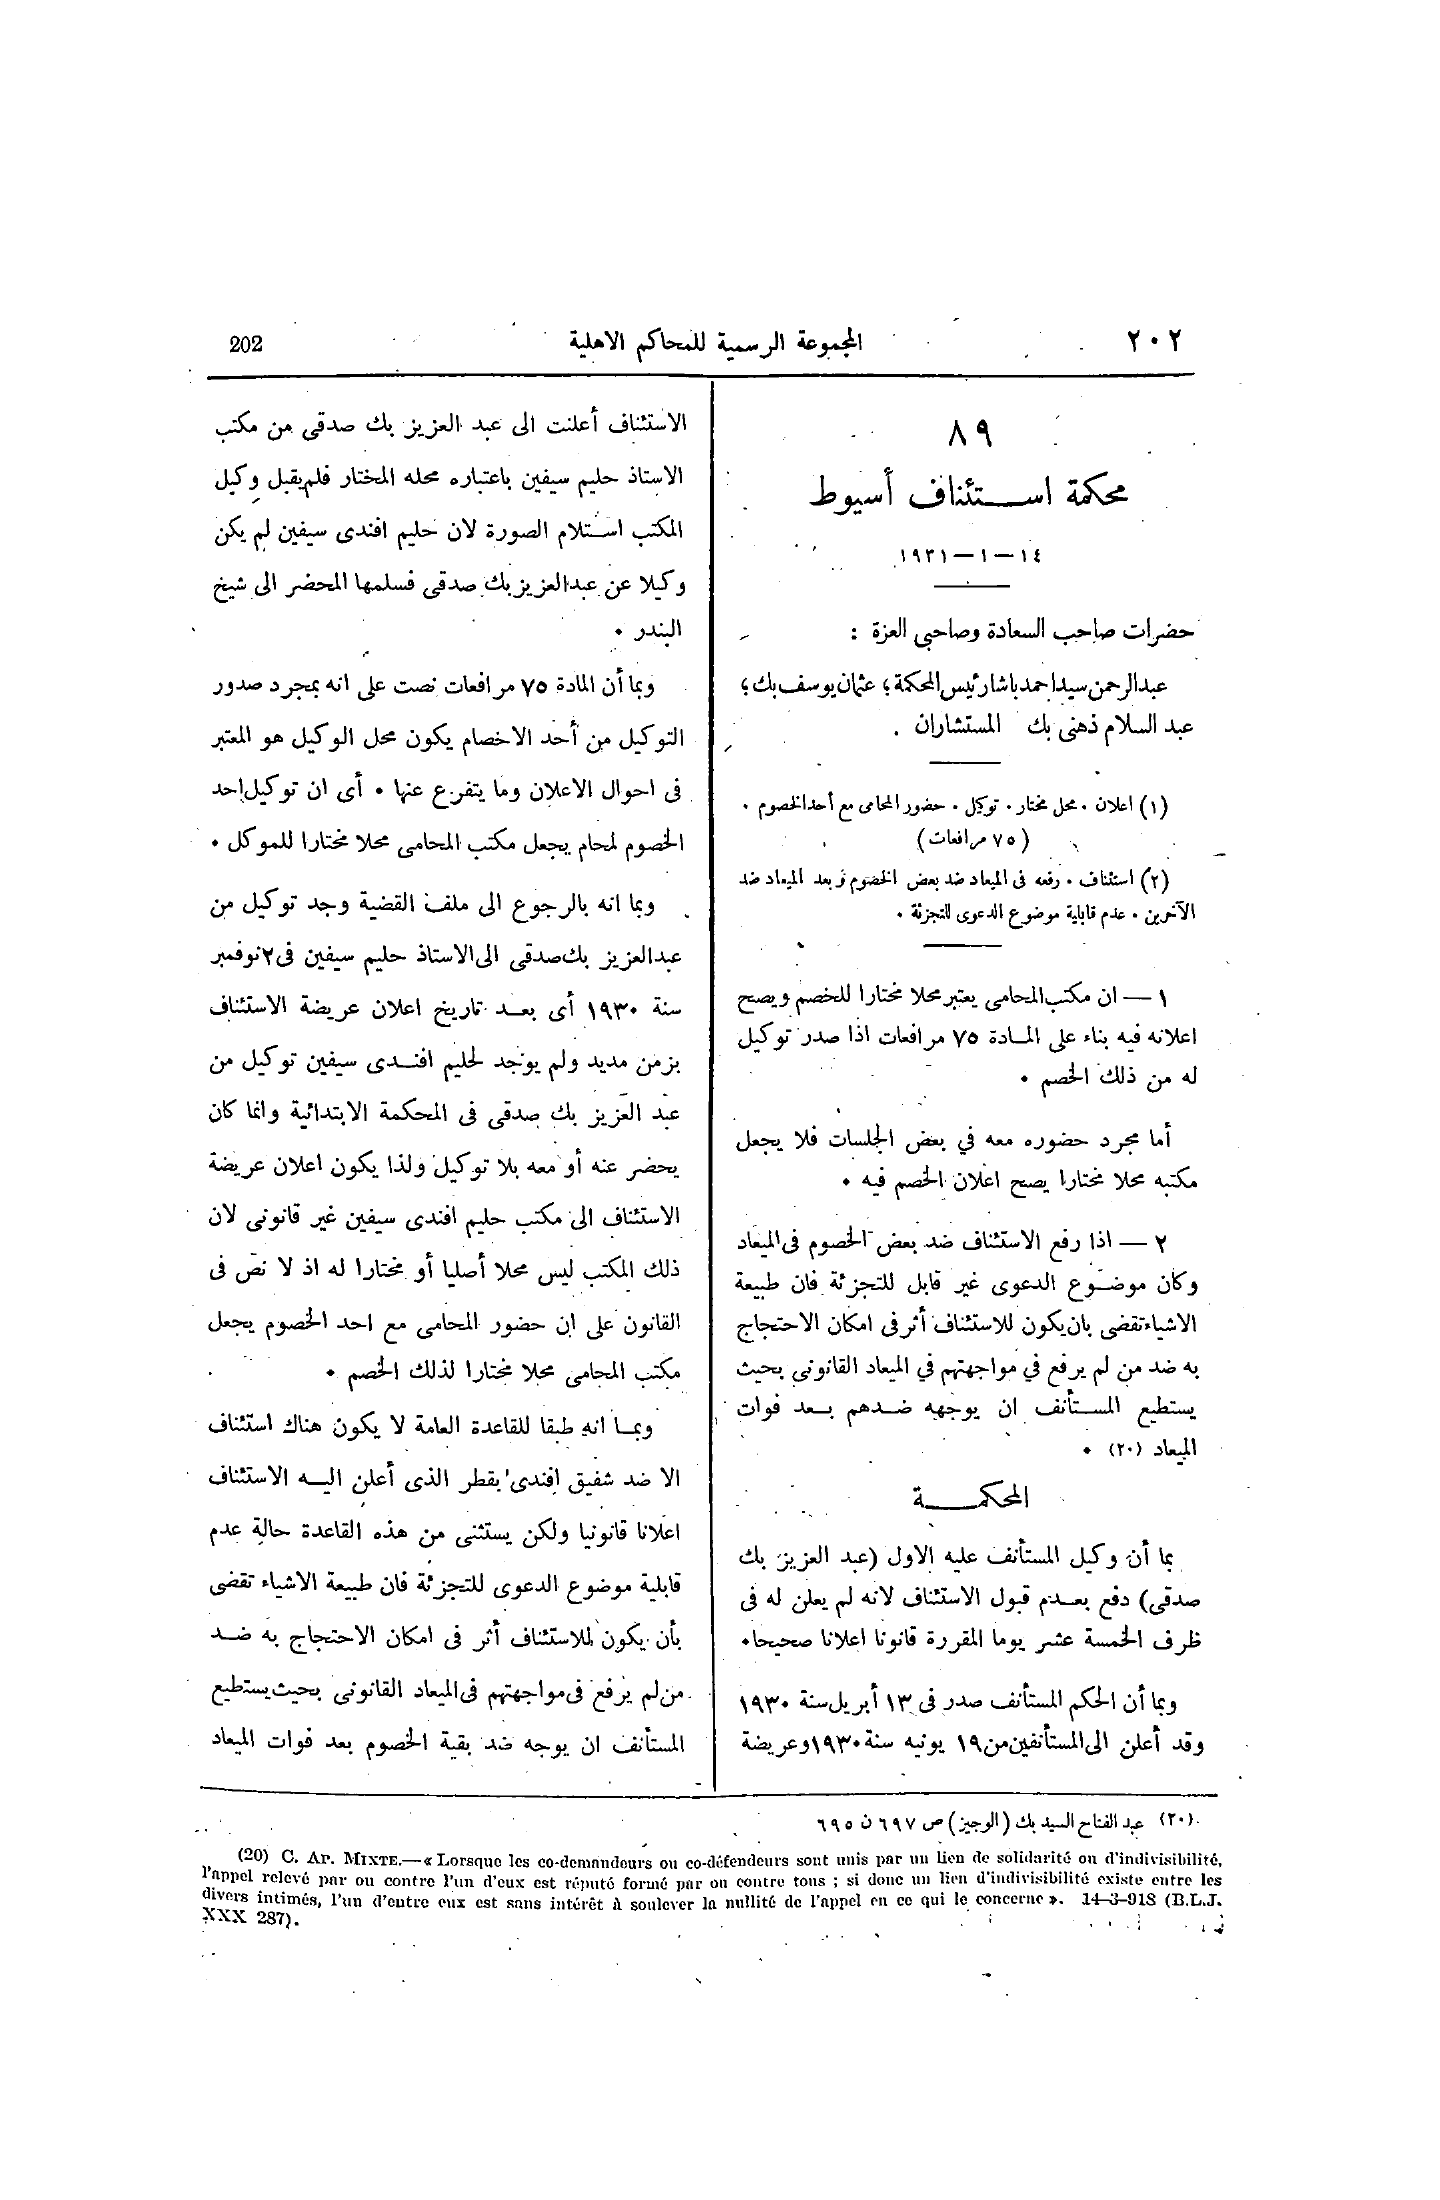 ٢٠٢
المجموعة الرسمية للمحاكم الاهلية
202
٨٩
محكمة استئناف أسيوط
١٤ – ١ – ١٩٣١
حضرات صاحب السعادة وصاحبى العزة :
عبد الرحمن سيد احمد باشا رئيس المحكمة ؛ عثمان يوسف بك ؛
عبد السلام ذهنى بك المستشاران .
(١) اعلان . محل مختار . توكيل . حضور المحامى مع أحد الخصوم .
( ٧٥ مرافعات )
(٢) استئناف . رفعه فى الميعاد ضد بعض الخصوم وبعد الميعاد ضد
الآخرين . عدم قابلية موضوع الدعوى للتجزئة .
١ — ان مكتب المحامى يعتبر محلا مختارا للخصم ويصح
اعلانه فيه بناء على المادة ٧٥ مرافعات اذا صدر توكيل
له من ذلك الخصم .
أما مجرد حضوره معه في بعض الجلسات فلا يجعل
مكتبه محلا مختارا يصح اعلان الخصم فيه .
٢ — اذا رفع الاستئناف ضد بعض الخصوم فى الميعاد
وكان موضوع الدعوى غير قابل للتجزئة فان طبيعة
الاشياء تقضى بان يكون للاستئناف أثر فى امكان الاحتجاج
به ضد من لم يرفع في مواجهتهم في الميعاد القانونى بحيث
يستطيع المستأنف ان يوجهه ضدهم بعد فوات
الميعاد (٢٠) .
المحكمة
بما أن وكيل المستأنف عليه الاول (عبد العزيز بك
صدقى) دفع بعدم قبول الاستئناف لانه لم يعلن له فى
ظرف الخمسة عشر يوما المقررة قانونا اعلانا صحيحا.
وبما أن الحكم المستأنف صدر فى ١٣ أبريل سنة ١٩٣٠
وقد أعلن الى المستأنفين من ١٩ يونيه سنة ١٩٣٠ وعريضة
الاستئناف أعلنت الى عبد العزيز بك صدقى من مكتب
الاستاذ حليم سيفين باعتباره محله المختار فلم يقبل وكيل
المكتب استلام الصورة لان حليم افندى سيفين لم يكن
وكيلا عن عبد العزيز بك صدقى فسلمها المحضر الى شيخ
البندر .
وبما أن المادة ٧٥ مرافعات نصت على انه بمجرد صدور
التوكيل من أحد الاخصام يكون محل الوكيل هو المعتبر
فى احوال الاعلان وما يتفرع عنها . أى ان توكيل احد
الخصوم لمحام يجعل مكتب المحامى محلا مختارا للموكل .
وبما انه بالرجوع الى ملف القضية وجد توكيل من
عبد العزيز بك صدقى الى الاستاذ حليم سيفين فى ٢ نوفمبر
سنة ١٩٣٠ أى بعد تاريخ اعلان عريضة الاستئناف
بزمن مديد ولم يوجد لحليم افندى سيفين توكيل من
عبد العزيز بك صدقى فى المحكمة الابتدائية وانما كان
يحضر عنه أو معه بلا توكيل ولذا يكون اعلان عريضة
الاستئناف الى مكتب حليم افندى سيفين غير قانونى لان
ذلك المكتب ليس محلا أصليا أو مختارا له اذ لا نص فى
القانون على ان حضور المحامى مع احد الخصوم يجعل
مكتب المحامى محلا مختارا لذلك الخصم .
وبما انه طبقا للقاعدة العامة لا يكون هناك استئناف
الا ضد شفيق افندى بقطر الذى أعلن اليه الاستئناف
اعلانا قانونيا ولكن يستثنى من هذه القاعدة حالة عدم
قابلية موضوع الدعوى للتجزئة فان طبيعة الاشياء تقضى
بأن يكون للاستئناف أثر فى امكان الاحتجاج به ضد
من لم يرفع فى مواجهتهم فى الميعاد القانونى بحيث يستطيع
المستأنف ان يوجه ضد بقية الخصوم بعد فوات الميعاد
(٢٠) عبد الفتاح السيد بك (الوجيز) ص ٦٩٧ ن ٦٩٥
(20) C. AP. MIXTE.—« Lorsque les co-demandeurs ou co-défendeurs sont unis par un lien de solidarité ou d'indivisibilité,
l'appel relevé par ou contre l'un d'eux est réputé formé par ou contre tous ; si donc un lien d'indivisibilité existe entre les
divers intimés, l'un d'entre eux est sans intérêt à soulever la nullité de l'appel en ce qui le concerne ». 14-3-918 (B.L.J.
XXX 287).